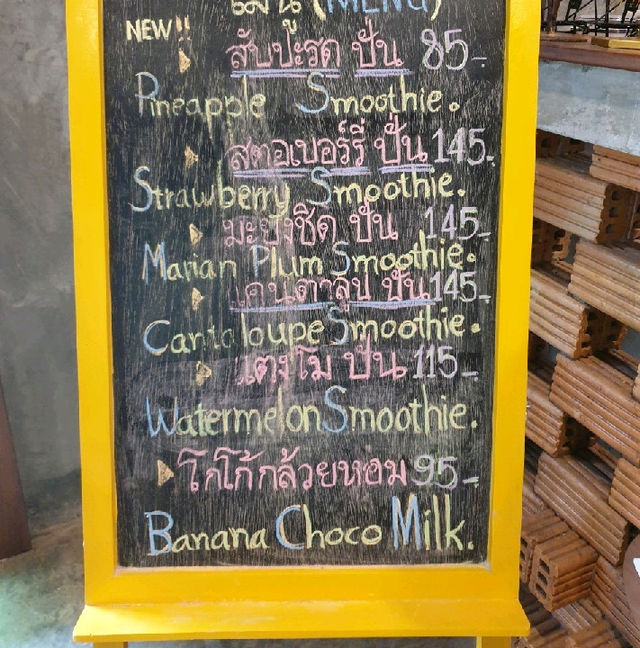 เมนู (MENU)
NEW!!
สับปะรด ปั่น 85-
Pineapple Smoothie.
สตอเบอร์รี่ ปั่น 145.
Strawberry Smoothie.
มะปังชิด ปั่น 145-
Marian Plum Smoothie.
แคนตาลูป ปั่น 145-
Cantaloupe Smoothie.
แตงโม ปั่น 115-
Watermelon Smoothie.
โกโก้กล้วยหอม 95-
Banana Choco Milk.